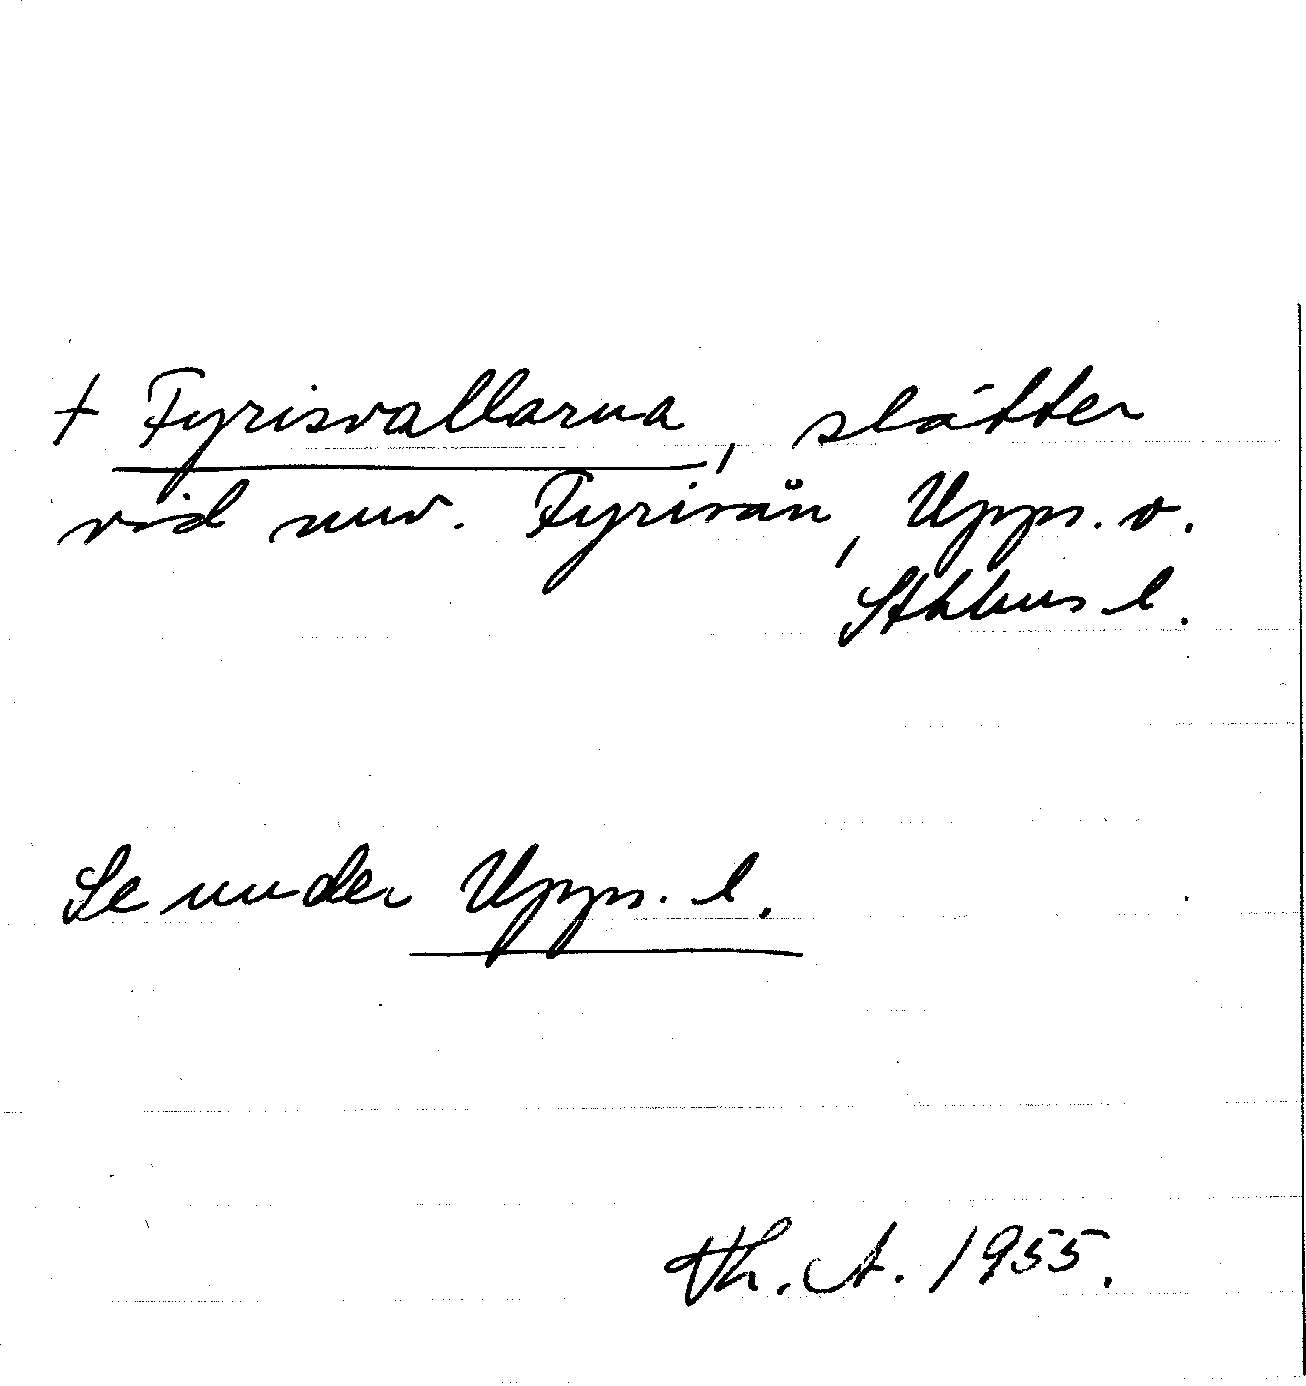 † Fyrisvallarna, slätter
vid nuv. Fyrisån, Upps. o.
Sthlms l.
Se under Upps. l.
Th. A. 1955.